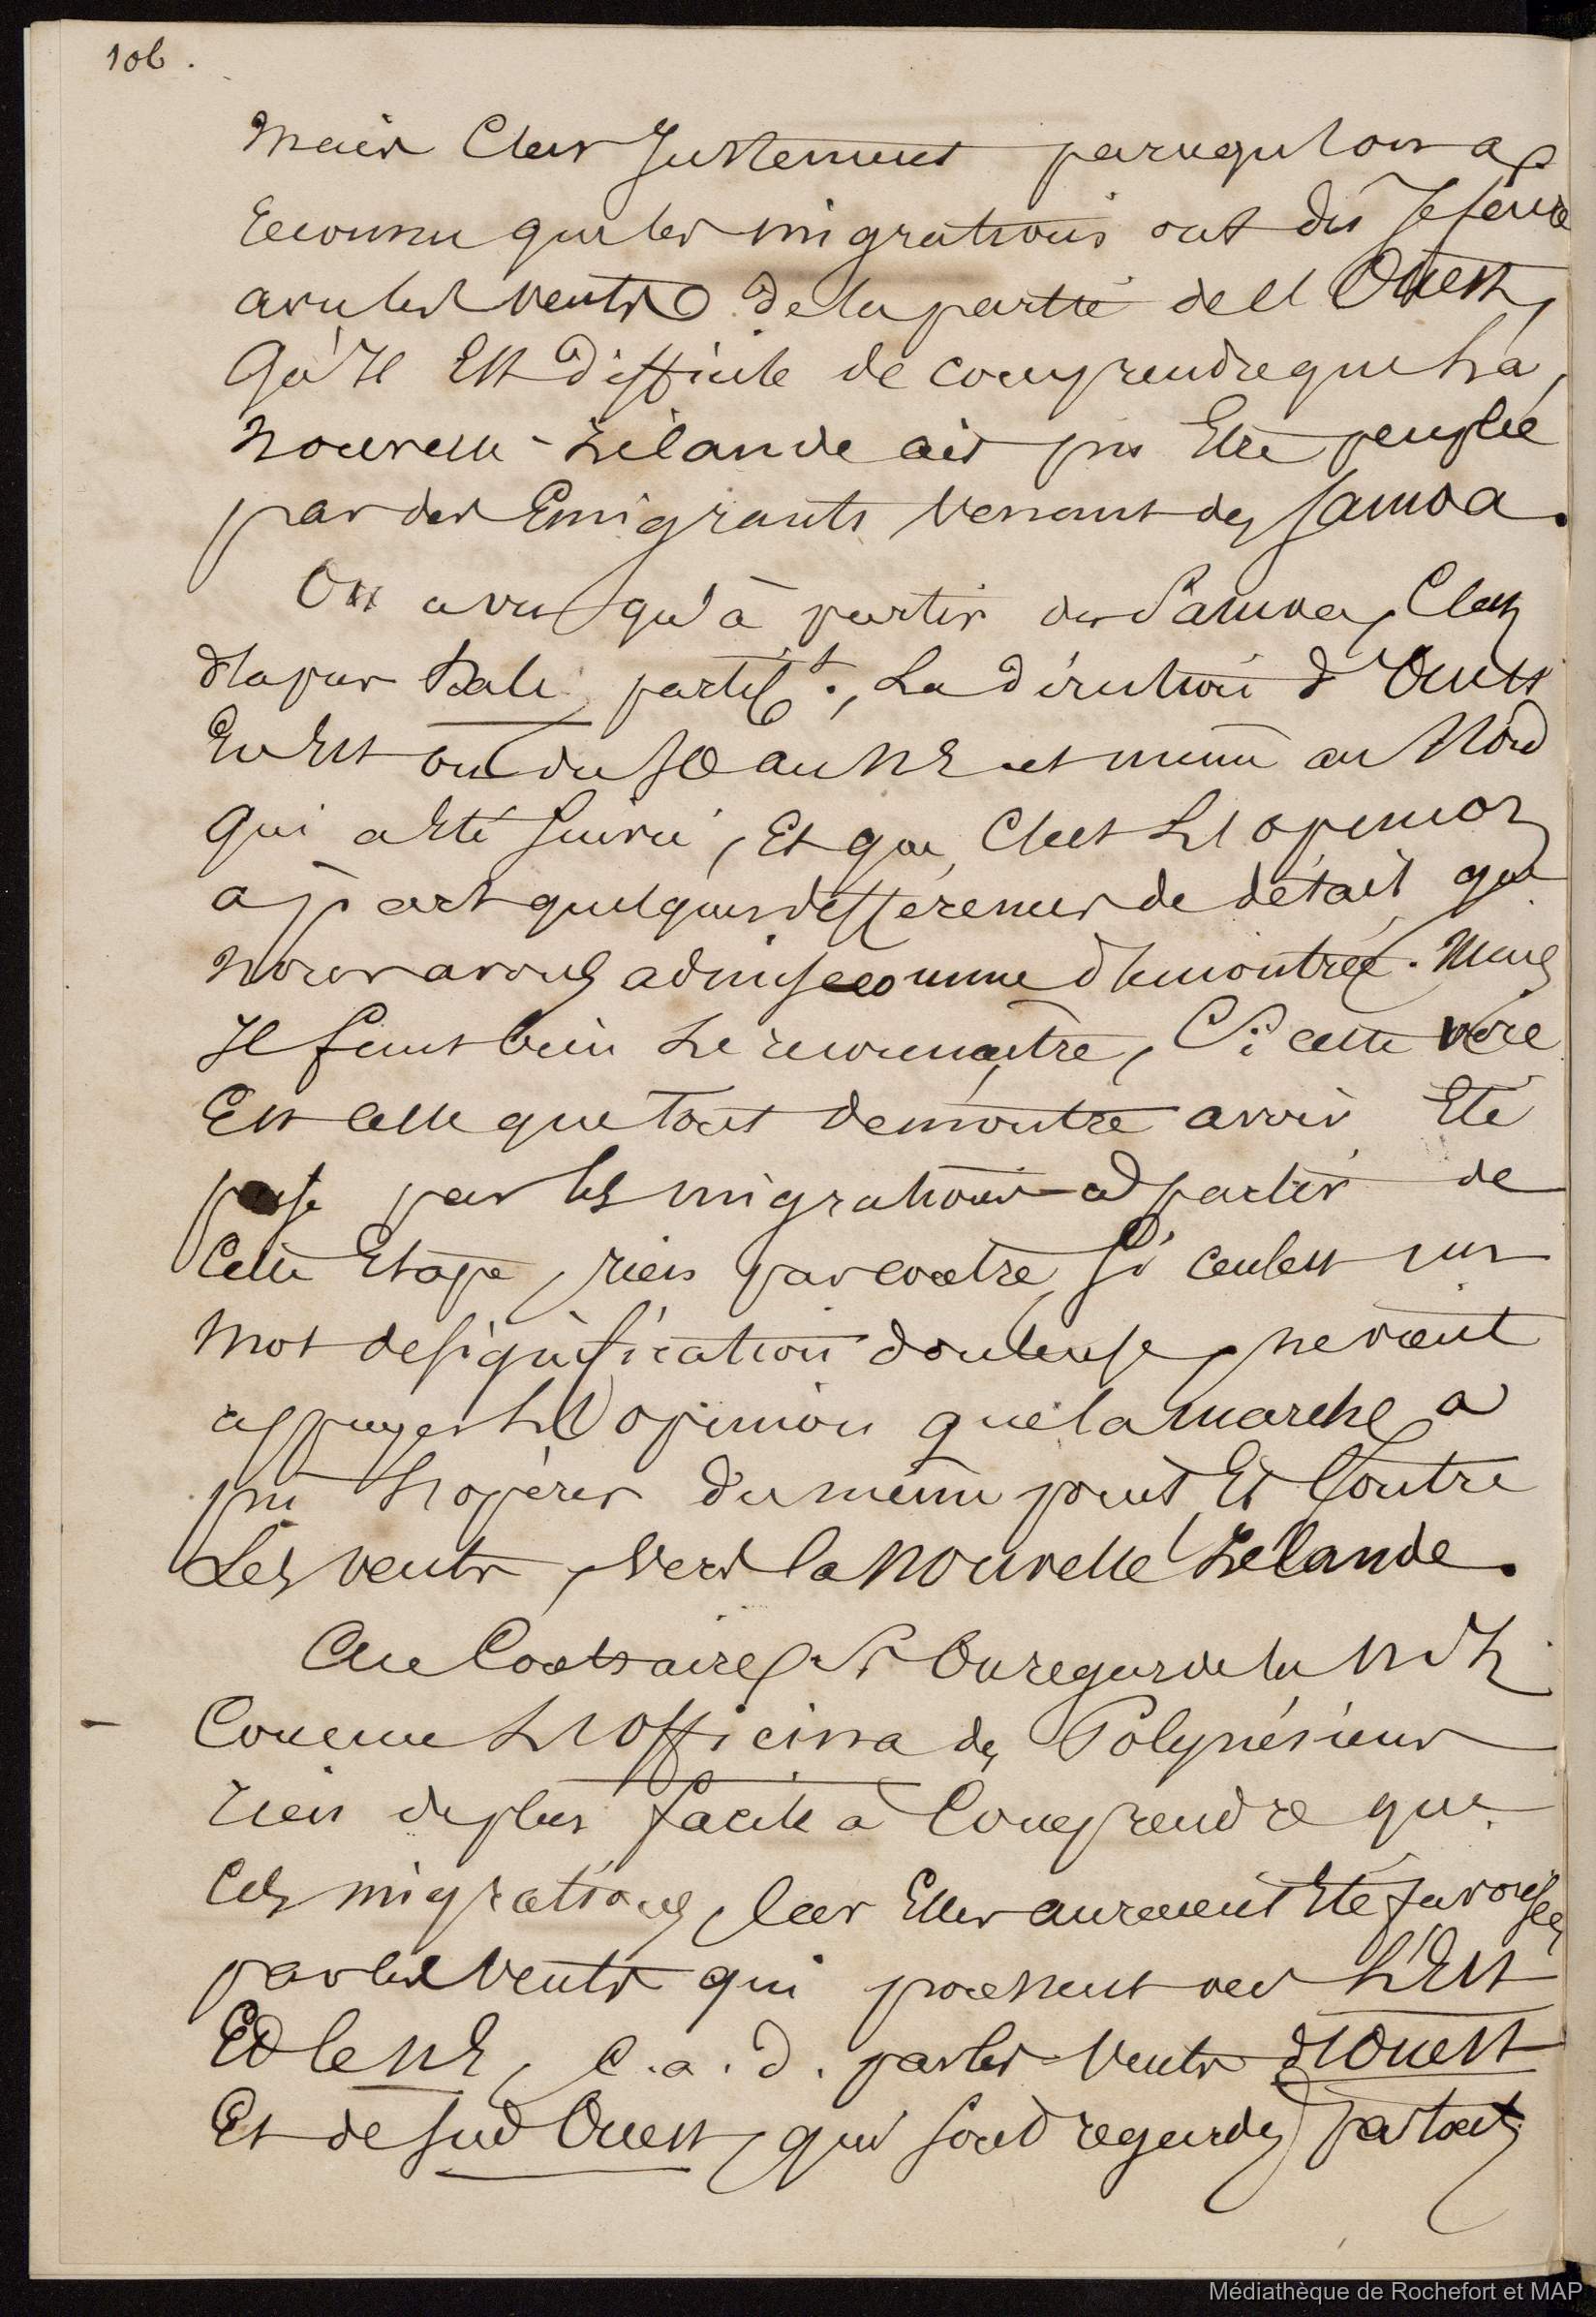 106.
Mais C'est Justement parcequ'on a
Reconnu que les migrations ont dû se faire
avec les vents de la partie de l'Ouest,
Qu'Il Est difficile de comprendre que la
Nouvelle-Zélande ait pu Etre peuplée
par des Emigrants venant des Samoa.
On a vu qu'à partir des Samoa, C'est
d'après Hale partict., La direction d'Ouest
En Est ou du SO au NE et même au Nord
Qui a Eté suivie, Et que C'est L'opinion
à part quelques différences de détail que
nous avons admise comme démontrée. Mais
Il faut bien le reconnaître, Si cette voie
Est celle que Tout démontre avoir Eté
prise par les migrations à partir de
Cette Etape, rien par contre, si ce n'est un
Mot de signification douteuse, ne vient
appuyer L'opinion que la marche a
pu s'opérer du même point Et Contre
Les vents, vers la Nouvelle Zélande.
Au Contraire, Si On regarde la N. Z.
Comme L'Officina des Polynésiens
rien de plus facile à Comprendre que
Ces migrations, Car Elles auraient Eté favorisées
par les Vents qui poussent vers L'Est
Et le NE, C.a.d. par les Vents d'Ouest
Et de Sud Ouest, qui sont regardés partout
Médiathèque de Rochefort et MAP